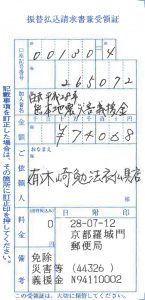 振替払込請求書兼受領証
口座記号
00130=4
番号
265072
加入者名
日赤平成28年
熊本地震災害義援金
金額
¥74088
おなまえ
ご依頼人
料金
日附印
0
28-07-12
京都羅城門
郵便局
備考
免除
災害等 (44326)
義援金 N94110002
記載事項を訂正した場合は、その箇所に訂正印を押してください。
この受領証は、大切に保管してください。